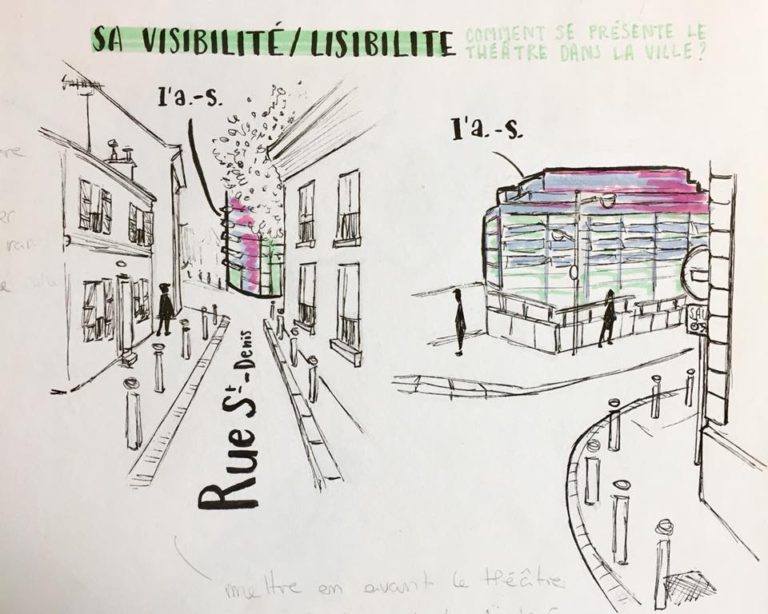 SA VISIBILITÉ/LISIBILITE
COMMENT SE PRÉSENTE LE
THÉÂTRE DANS LA VILLE?
I'a.-s.
I'a.-s.
SAUF
Rue St-Denis
mettre en avant le théâtre